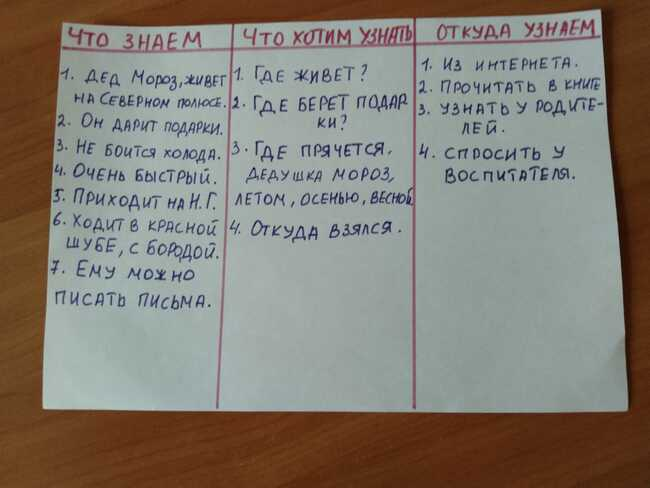 ЧТО ЗНАЕМ
1. ДЕД МОРОЗ, ЖИВЕТ
НА СЕВЕРНОМ ПОЛЮСЕ.
2. ОН ДАРИТ ПОДАРКИ.
3. НЕ БОИТСЯ ХОЛОДА.
4. ОЧЕНЬ БЫСТРЫЙ.
5. ПРИХОДИТ НА Н.Г.
6. ХОДИТ В КРАСНОЙ
ШУБЕ, С БОРОДОЙ.
7. ЕМУ МОЖНО
ПИСАТЬ ПИСЬМА.
ЧТО ХОТИМ УЗНАТЬ
1. ГДЕ ЖИВЕТ?
2. ГДЕ БЕРЕТ ПОДАР
КИ?
3. ГДЕ ПРЯЧЕТСЯ.
ДЕДУШКА МОРОЗ,
ЛЕТОМ, ОСЕНЬЮ, ВЕСНОЙ
4. ОТКУДА ВЗЯЛСЯ.
ОТКУДА УЗНАЕМ
1. ИЗ ИНТЕРНЕТА.
2. ПРОЧИТАТЬ В КНИГЕ
3. УЗНАТЬ У РОДИТЕ-
ЛЕЙ.
4. СПРОСИТЬ У
ВОСПИТАТЕЛЯ.